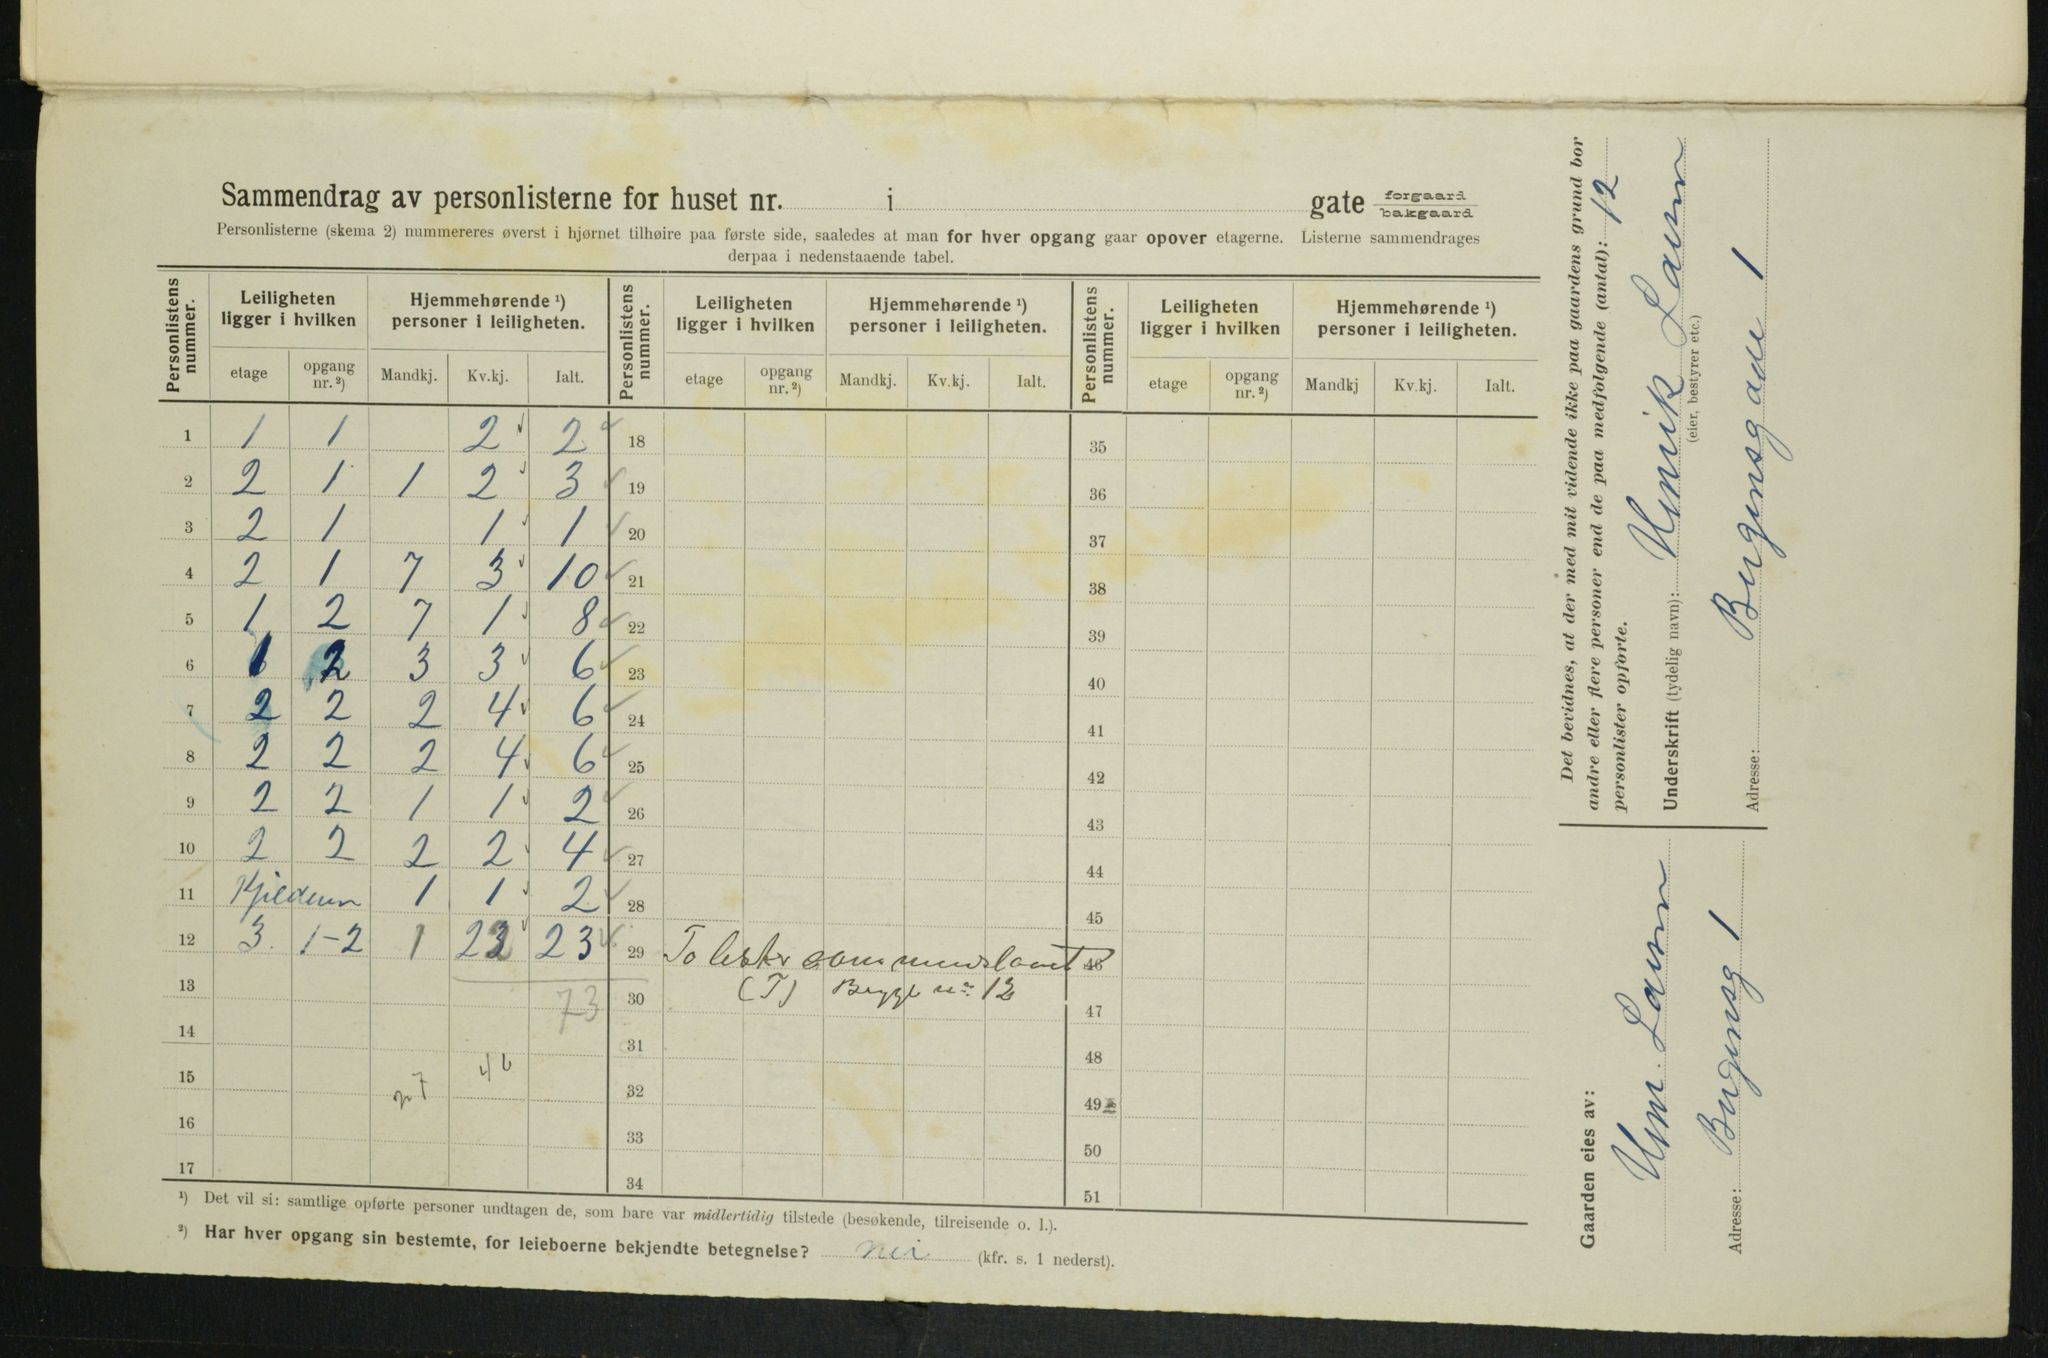 Sammendrag av personlisterne for huset nr. i gate forgaard bakgaard
Personlisterne (skema 2) nummereres øverst i hjørnet tilhøire paa første side, saaledes at man for hver opgang gaar opover etagerne. Listerne sammendrages
derpaa i nedenstaaende tabel.
Personlistens nummer. Leiligheten ligger i hvilken Hjemmehørende ¹) personer i leiligheten. Personlistens nummer. Leiligheten ligger i hvilken Hjemmehørende ¹) personer i leiligheten. Personlistens nummer. Leiligheten ligger i hvilken Hjemmehørende ¹) personer i leiligheten.
etage opgang nr. ²) Mandkj. Kv.kj. Ialt. etage opgang nr. ²) Mandkj. Kv.kj. Ialt. etage opgang nr. ²) Mandkj Kv.kj. Ialt.
1 1 1 2 2 18 35
2 2 1 1 2 3 19 36
3 2 1 1 1 20 37
4 2 1 7 3 10 21 38
5 1 2 7 1 8 22 39
6 1 2 3 3 6 23 40
7 2 2 2 4 6 24 41
8 2 2 2 4 6 25 42
9 2 2 1 1 2 26 43
10 2 2 2 2 4 27 44
11 Kjelderen 1 1 2 28 45
12 3. 1-2 1 22 23 29 To lister 46
13 73 30 (T) Brygge nr. 12 47
14 31 48
15 27 46 32 49
16 33 50
17 34 51
¹) Det vil si: samtlige opførte personer undtagen de, som bare var midlertidig tilstede (besøkende, tilreisende o. l.).
²) Har hver opgang sin bestemte, for leieboerne bekjendte betegnelse? nei (kfr. s. 1 nederst).
Det bevidnes, at der med mit vidende ikke paa gaardens grund bor
andre eller flere personer end de paa medfølgende (antal): 12
personlister opførte.
Underskrift (tydelig navn): Henrik Larsen
(eier, bestyrer etc.)
Adresse: Bergensgade 1
Gaarden eies av:
Henr. Larsen
Adresse: Bergensg 1